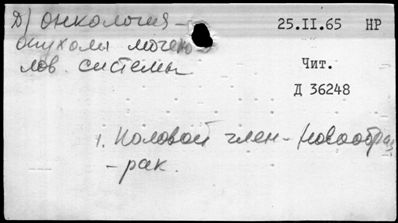 Д) онкология –
опухоли мочепо
лов. системы
25.II.65 НР
Чит.
Д 36248
1. Половой член - Новообраз
- рак.